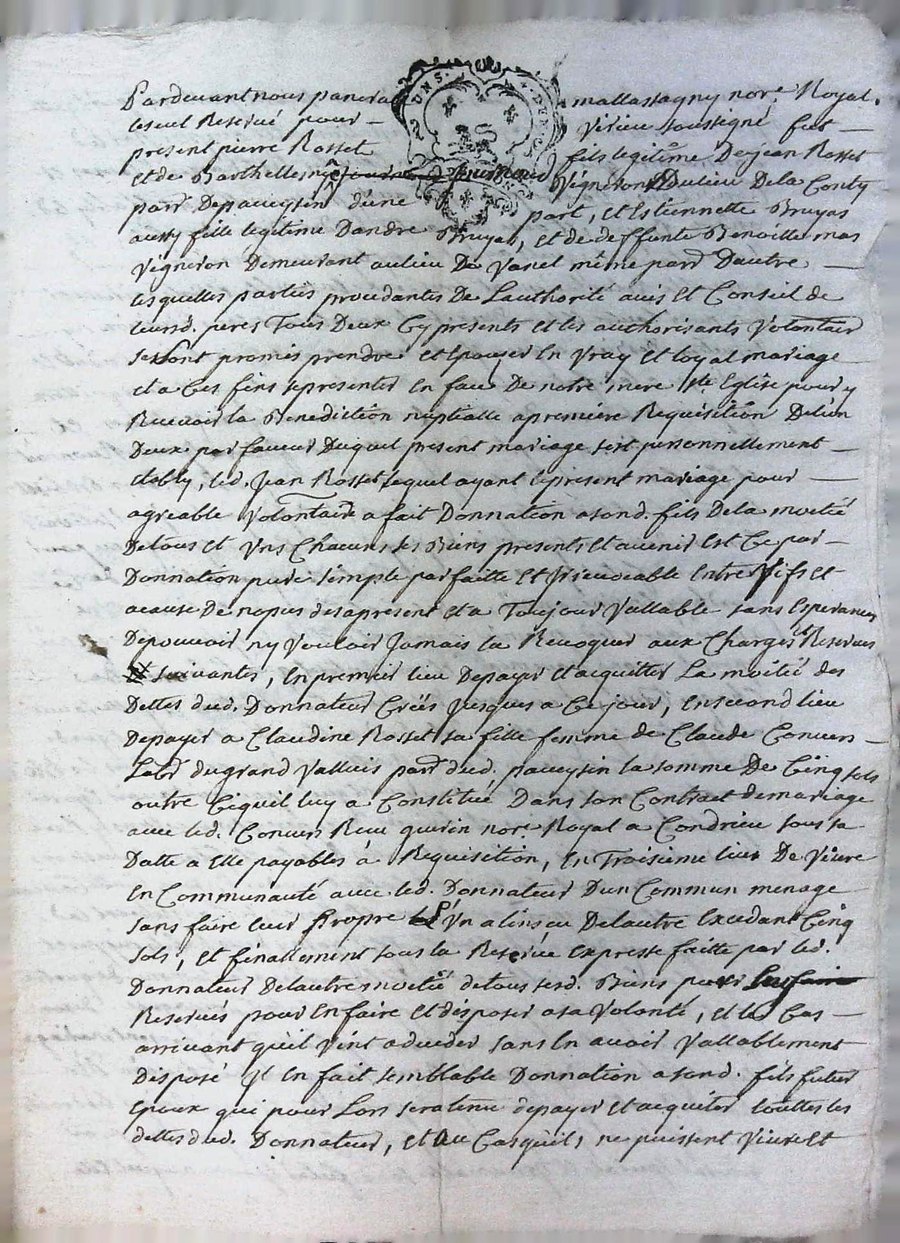 Pardevant nous pancra mallassagny nore. Royal.
le seul Reservé pour Virieu soussigné fut
present pierre Rosset fils legitime De jean Rosset
et de Barthellemye Vigneron Du lieu De la Conty
parr. De paveysin d'une part, et Estiennette Bruyas
aussy fille legitime D'andre Bruyas, et de deffunte Benoitte mas
Vigneron Demeurant au lieu Du Vanel même parr. D'autre
lesquelles parties procedantes De L'authorité avis Et Conseil de
leursd. peres Tous Deux Cy presents et les authorisants Volontair
se sont promis prendre et Epouser En Vray et loyal mariage
et a Ces fins se presenter En face De notre mere ste Eglise pour y
Recevoir la Benediction nuptialle a premiere Requisition De l'un
Deux par faveur Duquel present mariage s'est personnellement
Etably, led. Jean Rosset lequel ayant le present mariage pour
agreable Volontaire a fait Donnation a sond. fils De la moitié
De tous et Uns Chacuns ses Biens presents Et avenir Est Ce par
Donnation pure simple parfaitte et Irrevocable Entre Vifs et
a cause De nopces des a present et a Toujour Vallable sans Esperance
De pouvoir ny Vouloir Jamais la Revoquer aux Charges et Reserves
suivantes, En premier lieu De payer et acquitter La moitié des
Dettes dud. Donnateur Créés Jusques a Ce jour, En second lieu
De payer a Claudine Rosset sa fille femme de Claude Convers
Labr. du grand Valluis parr. dud. paveysin la somme De Cinq sols
outre Ce qu'il luy a Constitué Dans son Contract de mariage
avec led. Convers Receu guerin nore. Royal a Condrieu sous sa
Datte a Elle payables à Requisition, En Troisieme lieu De Vivre
En Communauté avec led. Donnateur D'un Commun menage
sans faire leur propre L'Un a l'insceu De l'autre Excedant Cinq
sols, et finallement sous la Reserve Expresse faitte par led.
Donnateur De l'autre moitié de tous sesd. Biens par luy
Reservés pour En faire Et disposer a sa Volonté, et le Cas
arrivant qu'il Vint a deceder sans En avoir Vallablement
Disposé Il En fait semblable Donnation a sond. fils futur
Epoux qui pour Lors sera tenu de payer et acquiter touttes les
dettes dud. Donnateur, et au Cas qu'ils ne puissent Vivre Et